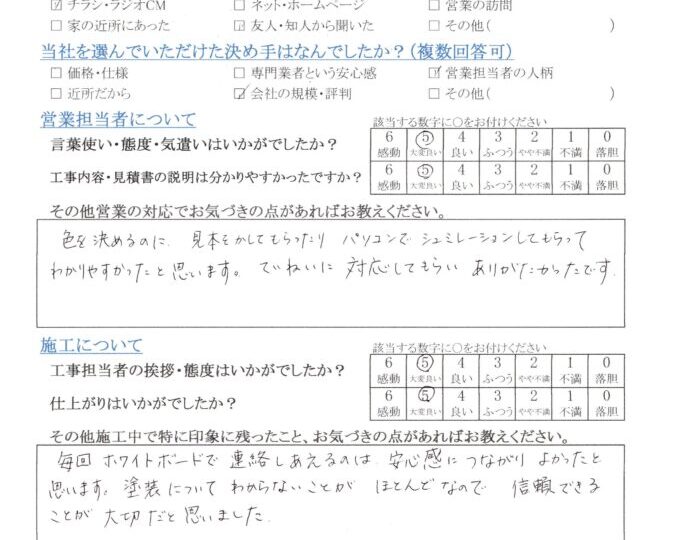 ☑ チラシ・ラジオCM □ ネット・ホームページ □ 営業の訪問
□ 家の近所にあった ☑ 友人・知人から聞いた □ その他( )
当社を選んでいただけた決め手はなんでしたか?(複数回答可)
□ 価格・仕様 □ 専門業者という安心感 ☑ 営業担当者の人柄
□ 近所だから ☑ 会社の規模・評判 □ その他( )
営業担当者について 該当する数字に○をお付けください
言葉使い・態度・気遣いはいかがでしたか? 6 5 4 3 2 1 0
感動 大変良い 良い ふつう やや不満 不満 落胆
工事内容・見積書の説明は分かりやすかったですか? 6 5 4 3 2 1 0
感動 大変良い 良い ふつう やや不満 不満 落胆
その他営業の対応でお気づきの点があればお教えください。
色を決めるのに、見本をかしてもらったり パソコンで シュミレーションしてもらって
わかりやすかったと思います。ていねいに 対応してもらい ありがたかったです。
施工について 該当する数字に○をお付けください
工事担当者の挨拶・態度はいかがでしたか? 6 5 4 3 2 1 0
感動 大変良い 良い ふつう やや不満 不満 落胆
仕上がりはいかがでしたか? 6 5 4 3 2 1 0
感動 大変良い 良い ふつう やや不満 不満 落胆
その他施工中で特に印象に残ったこと、お気づきの点があればお教えください。
毎回 ホワイトボードで 連絡しあえるのは 安心感に つながり よかったと
思います。塗装について わからないことが ほとんどなので 信頼できる
ことが 大切だと思いました。